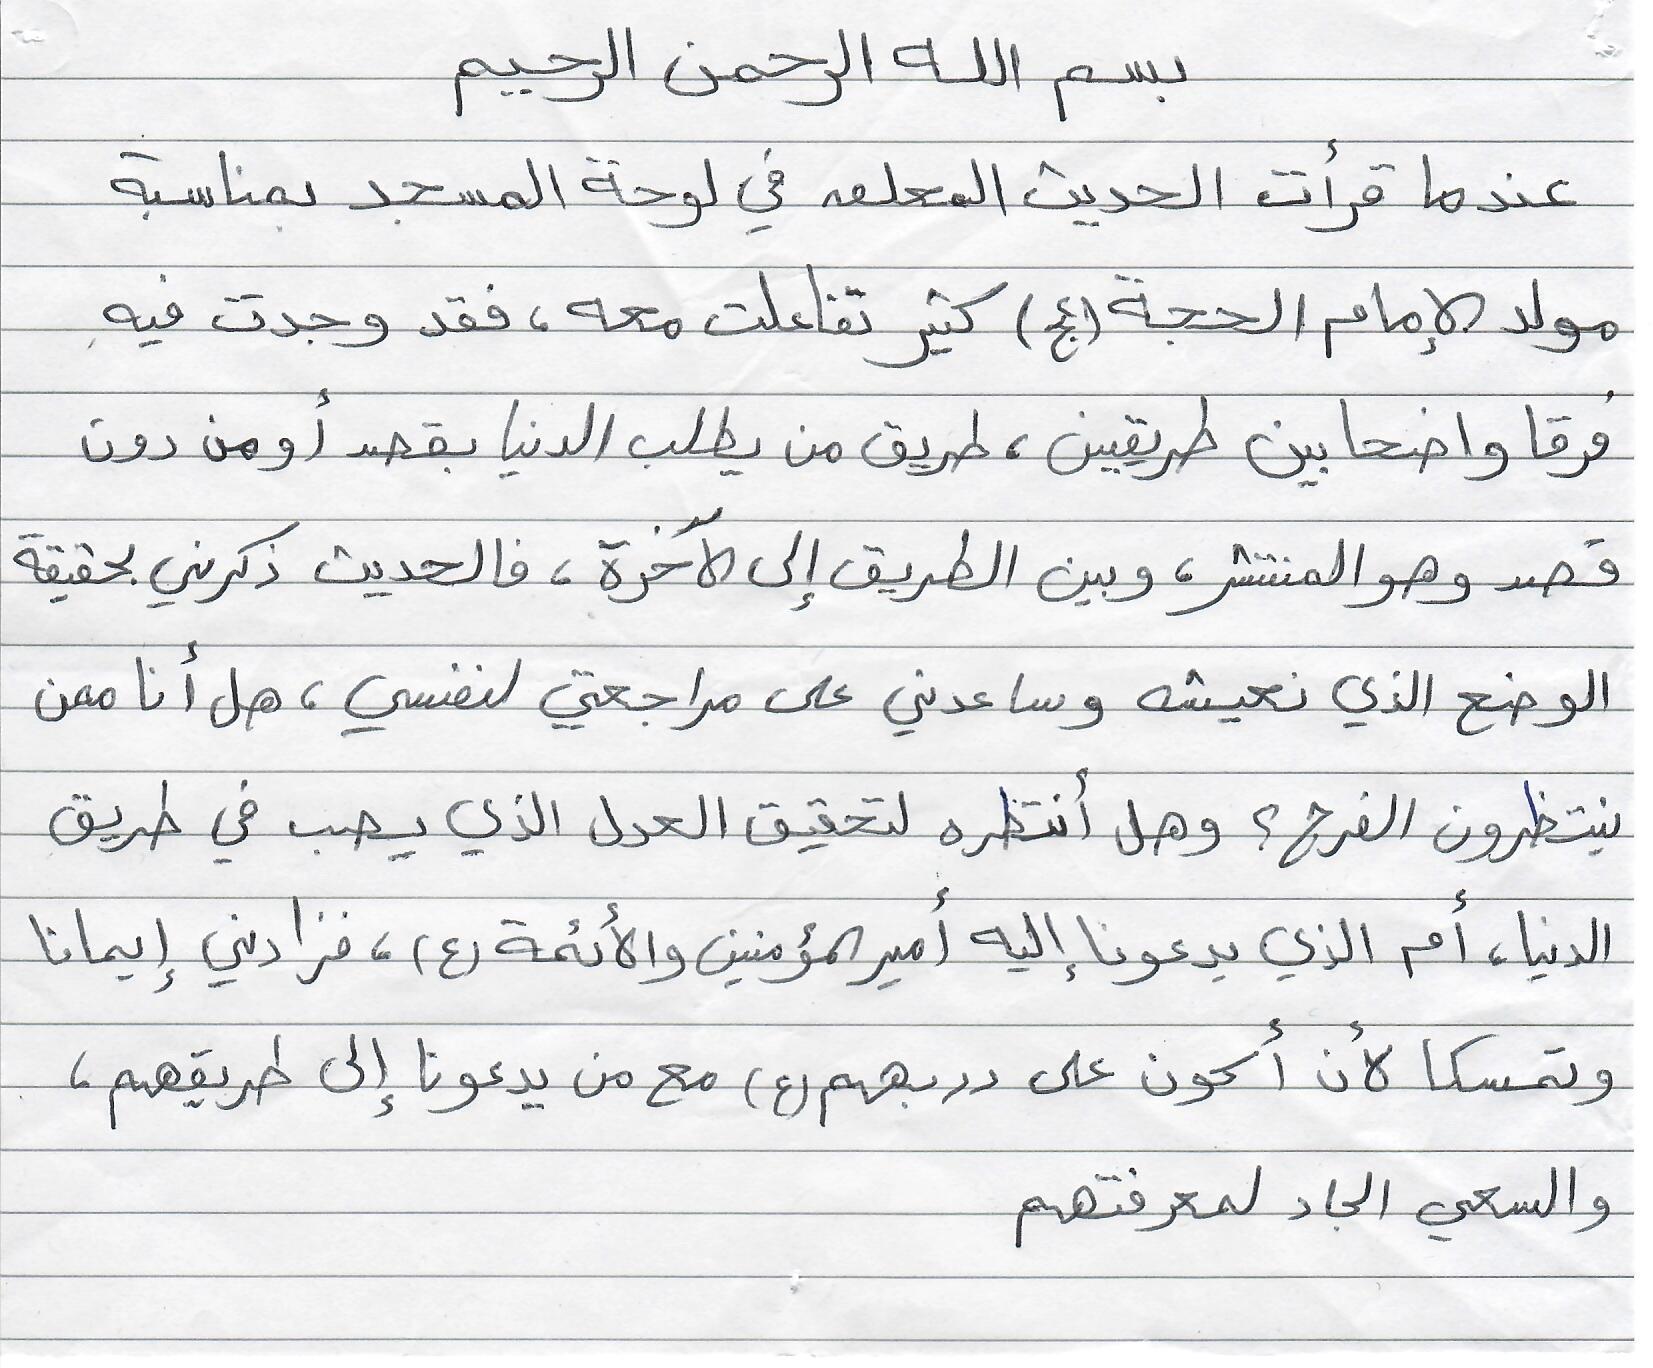 بسم الله الرحمن الرحيم
عندما قرأت الحديث المعلق في لوحة المسجد بمناسبة
مولد الإمام الحجة (عج) كثير تفاعلت معه، فقد وجدت فيه
فرقا واضحا بين طريقين، طريق من يطلب الدنيا بقصد أو من دون
قصد وهو المنتشر، وبين الطريق إلى الآخرة، فالحديث ذكرني بحقيقة
الوضع الذي نعيشه وساعدني على مراجعتي لنفسي، هل أنا ممن
ينتظرون الفرج؟ وهل أنتظره لتحقيق العدل الذي يصب في طريق
الدنيا، أم الذي يدعونا إليه أمير المؤمنين والأئمة (ع)، فزادني إيمانا
وتمسكا لأن أكون على دربهم (ع) مع من يدعونا إلى طريقهم،
والسعي الجاد لمعرفتهم